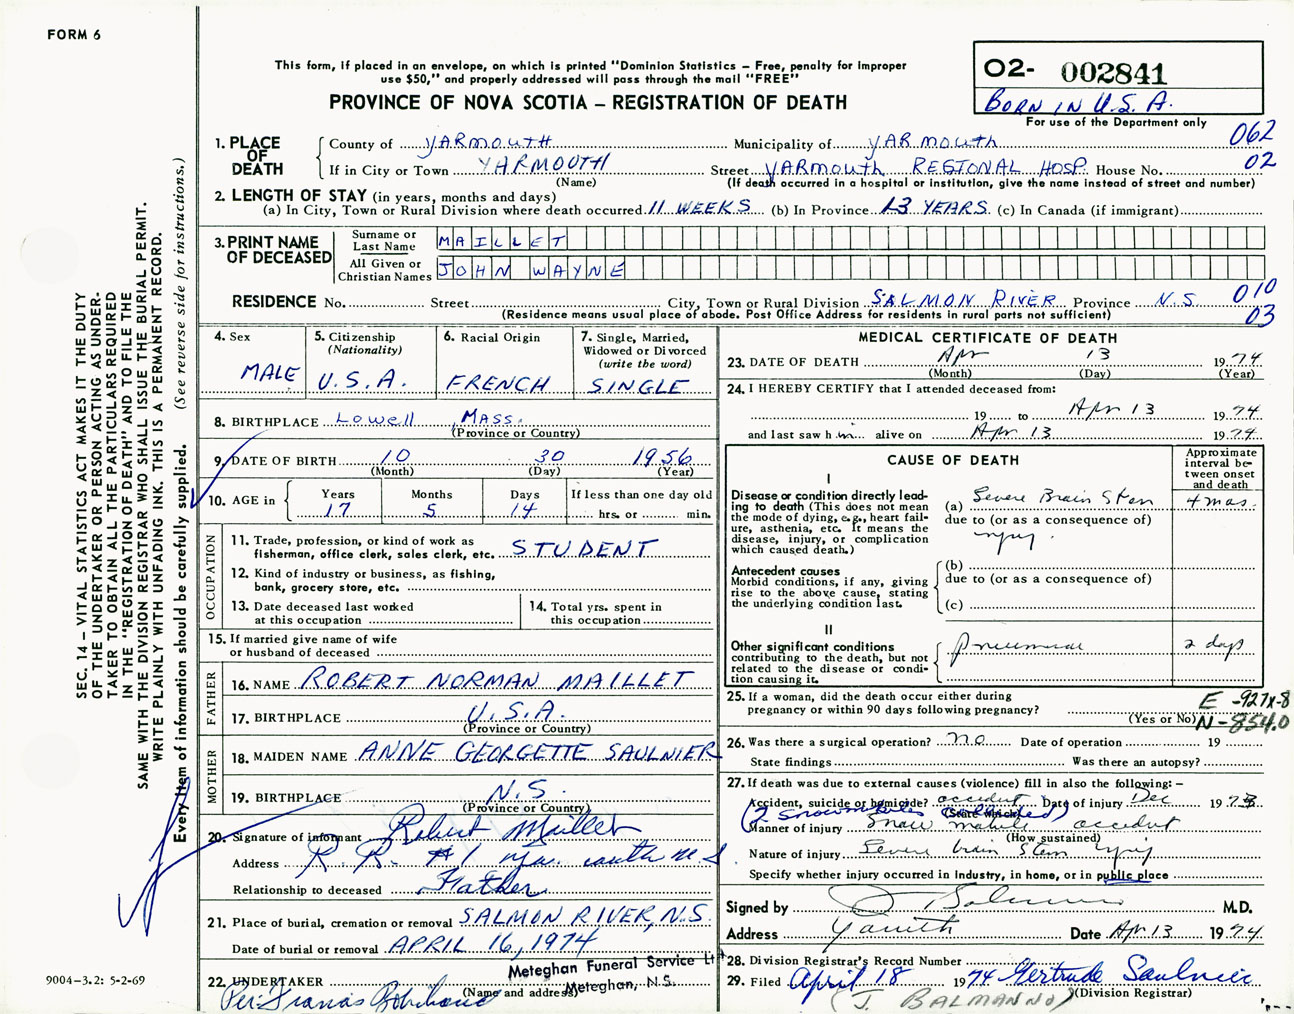 FORM 6
This form, if placed in an envelope, on which is printed "Dominion Statistics – Free, penalty for improper
use $50," and properly addressed will pass through the mail "FREE"
PROVINCE OF NOVA SCOTIA – REGISTRATION OF DEATH
02- 002841
BORN IN U.S.A.
For use of the Department only
062
02
1. PLACE OF DEATH
County of YARMOUTH Municipality of YARMOUTH
If in City or Town YARMOUTH Street YARMOUTH REGIONAL HOSP. House No.
(Name) (If death occurred in a hospital or institution, give the name instead of street and number)
2. LENGTH OF STAY (in years, months and days)
(a) In City, Town or Rural Division where death occurred 11 WEEKS (b) In Province 13 YEARS (c) In Canada (if immigrant)
3. PRINT NAME OF DECEASED
Surname or Last Name MAILLET
All Given or Christian Names JOHN WAYNE
RESIDENCE No. Street City, Town or Rural Division SALMON RIVER Province N.S
(Residence means usual place of abode. Post Office Address for residents in rural parts not sufficient)
010
03
4. Sex MALE
5. Citizenship (Nationality) U.S.A.
6. Racial Origin FRENCH
7. Single, Married, Widowed or Divorced (write the word) SINGLE
8. BIRTHPLACE Lowell, MASS.
(Province or Country)
9. DATE OF BIRTH 10 30 1956
(Month) (Day) (Year)
10. AGE in Years 17 Months 5 Days 14 If less than one day old
hrs. or min.
OCCUPATION
11. Trade, profession, or kind of work as
fisherman, office clerk, sales clerk, etc. STUDENT
12. Kind of industry or business, as fishing,
bank, grocery store, etc.
13. Date deceased last worked
at this occupation
14. Total yrs. spent in
this occupation
15. If married give name of wife
or husband of deceased
FATHER
16. NAME ROBERT NORMAN MAILLET
17. BIRTHPLACE U.S.A.
(Province or Country)
MOTHER
18. MAIDEN NAME ANNE GEORGETTE SAULNIER
19. BIRTHPLACE N.S.
(Province or Country)
20. Signature of informant Robert Maillet
Address R R. #1 Yarmouth N S
Relationship to deceased Father
21. Place of burial, cremation or removal SALMON RIVER, N.S.
Date of burial or removal APRIL 16, 1974
22. UNDERTAKER Meteghan Funeral Service Lt
(Name and address) Meteghan, N.S.
Per: Francis Robichaud
MEDICAL CERTIFICATE OF DEATH
23. DATE OF DEATH Apr 13 1974
(Month) (Day) (Year)
24. I HEREBY CERTIFY that I attended deceased from:
19 to Apr 13 1974
and last saw him alive on Apr 13 1974
CAUSE OF DEATH
Approximate interval between onset and death
I
Disease or condition directly leading to death (This does not mean the mode of dying, e.g., heart failure, asthenia, etc. It means the disease, injury, or complication which caused death.)
(a) Severe Brain Stem 4 mos.
due to (or as a consequence of)
injury.
Antecedent causes
Morbid conditions, if any, giving rise to the above cause, stating the underlying condition last.
(b)
due to (or as a consequence of)
(c)
II
Other significant conditions
contributing to the death, but not related to the disease or condition causing it.
pneumonia 2 days
25. If a woman, did the death occur either during
pregnancy or within 90 days following pregnancy?
(Yes or No)
E -927X-8
N-854.0
26. Was there a surgical operation? no Date of operation 19
State findings Was there an autopsy?
27. If death was due to external causes (violence) fill in also the following: –
Accident, suicide or homicide? accident Date of injury Dec 1973
(State which)
(2 snowmobiles collided)
Manner of injury snow mobile accident
(How sustained)
Nature of injury Severe brain stem injury
Specify whether injury occurred in industry, in home, or in public place
Signed by M.D.
Address Yarmouth Date Apr 13 1974
28. Division Registrar's Record Number
29. Filed April 18 1974 Gertrude Saulnier
(Division Registrar)
(J. BALMANNO)
SEC. 14 – VITAL STATISTICS ACT MAKES IT THE DUTY
OF THE UNDERTAKER OR PERSON ACTING AS UNDER-
TAKER TO OBTAIN ALL THE PARTICULARS REQUIRED
IN THE "REGISTRATION OF DEATH" AND TO FILE THE
SAME WITH THE DIVISION REGISTRAR WHO SHALL ISSUE THE BURIAL PERMIT.
WRITE PLAINLY WITH UNFADING INK. THIS IS A PERMANENT RECORD.
Every item of information should be carefully supplied. (See reverse side for instructions.)
9004-3.2: 5-2-69